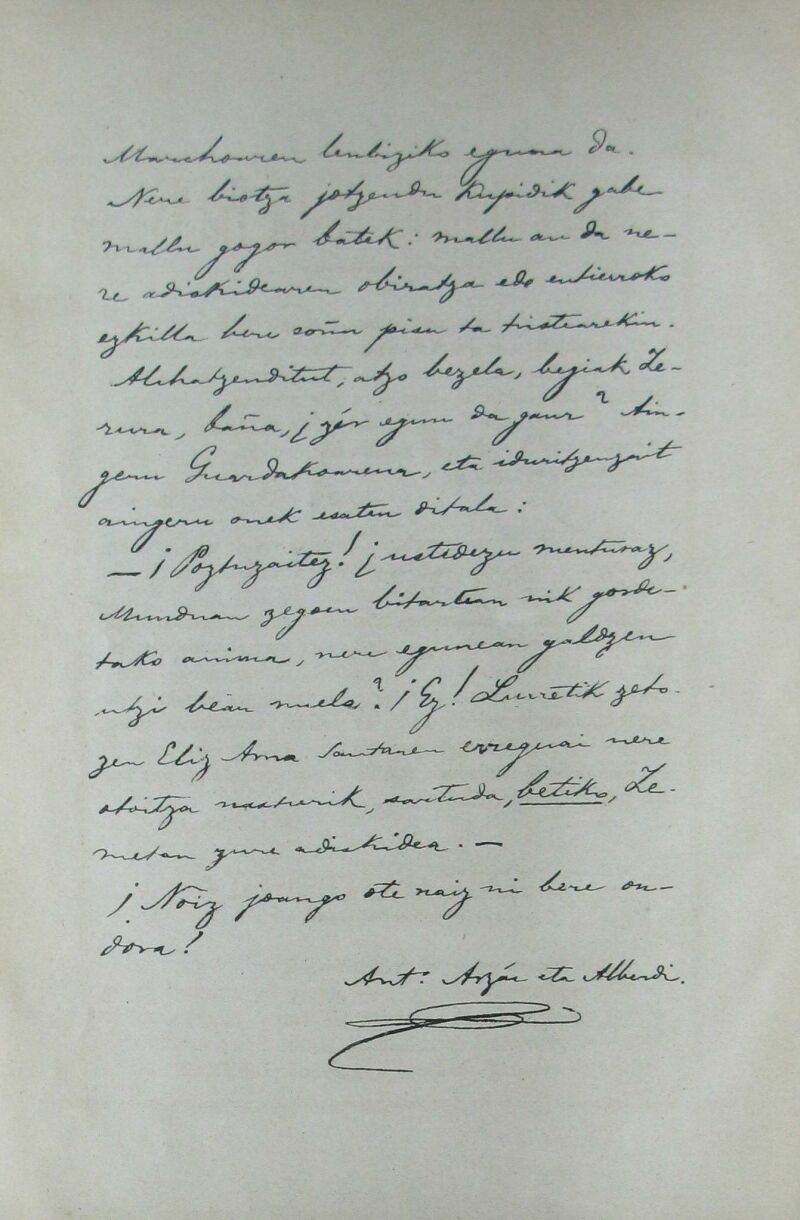 Marchoaren lenbiziko eguna da.
Nere biotza jotzendu kupidik gabe
mallu gogor batek: mallu au da ne-
re adiskidearen obiratza edo entierroko
ezkilla bere soñu pisu ta tristearekin.
Alchatzenditut, atzo bezela, begiak Ze-
rura, baña, ¿zér egun da gaur? Ain-
geru Guardakoarena, eta iduritzenzait
aingeru onek esaten ditala:
— ¡Poztuzaitez! ¿ustedezu menturaz,
Munduan zegoen bitartean nik gorde-
tako anima, nere egunean galdzen
utzi bean nuela? ¡Ez! Lurretik zeto-
zen Eliz Ama Santaren erreguai nere
otoitza nasturik, sartuda, betiko, Ze-
rueta zure adiskidea. —
¡Noiz joango ote naiz ni bere on-
dora!
Ant.º Arzác eta Alberdi.